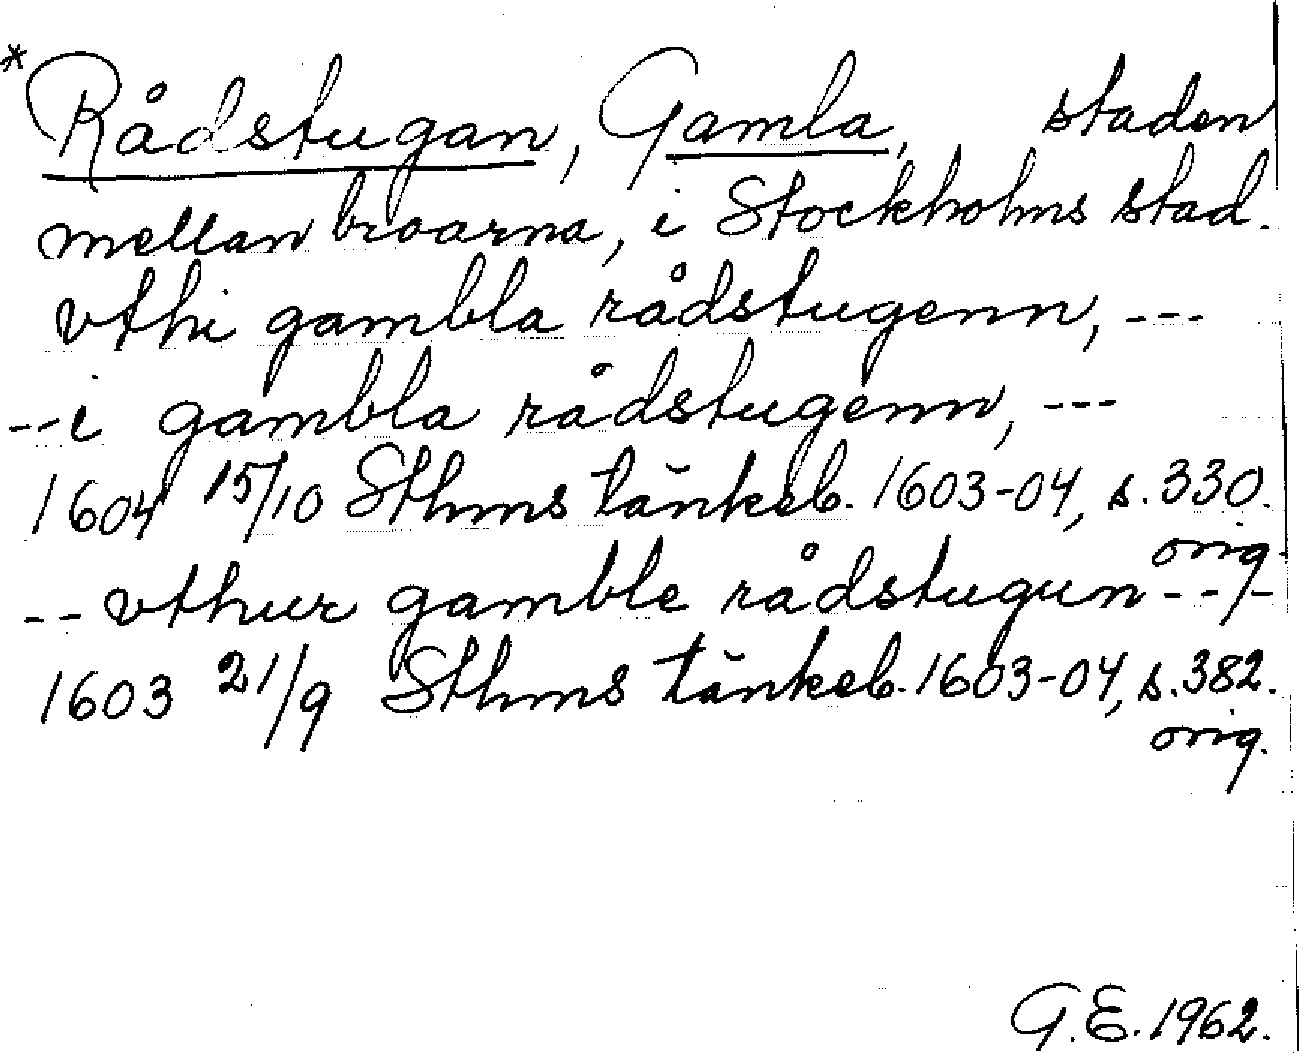 * Rådstugan, Gamla, staden
mellan broarna, i Stockholms stad.
vthi gambla rådstugenn, ---
--i gambla rådstugenn, ---
1604 15/10 Sthms tänkeb. 1603-04, s. 330.
orig.
-- vthur gamble rådstugun ---
1603 21/9 Sthms tänkeb. 1603-04, s. 382.
orig.
G.E. 1962.